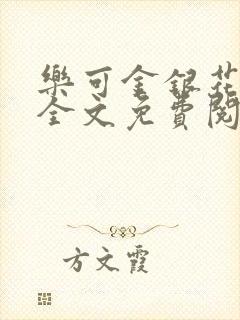 樂可金銀花
全文免費閱
方文霞